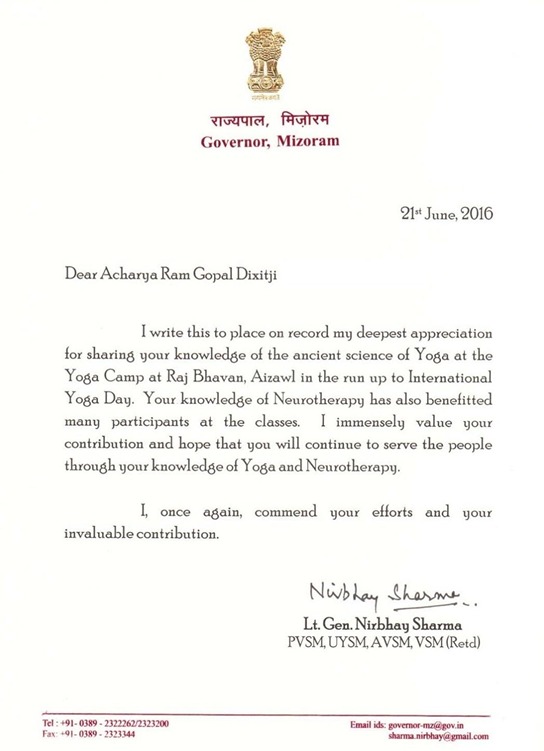 सत्यमेव जयते
राज्यपाल, मिज़ोरम
Governor, Mizoram
21st June, 2016
Dear Acharya Ram Gopal Dixitji
I write this to place on record my deepest appreciation
for sharing your knowledge of the ancient science of Yoga at the
Yoga Camp at Raj Bhavan, Aizawl in the run up to International
Yoga Day. Your knowledge of Neurotherapy has also benefitted
many participants at the classes. I immensely value your
contribution and hope that you will continue to serve the people
through your knowledge of Yoga and Neurotherapy.
I, once again, commend your efforts and your
invaluable contribution.
Nirbhay Sharma
Lt. Gen. Nirbhay Sharma
PVSM, UYSM, AVSM, VSM (Retd)
Tel : +91- 0389 - 2322262/2323200
Fax: +91- 0389 - 2323344
Email ids: governor-mz@gov.in
sharma.nirbhay@gmail.com